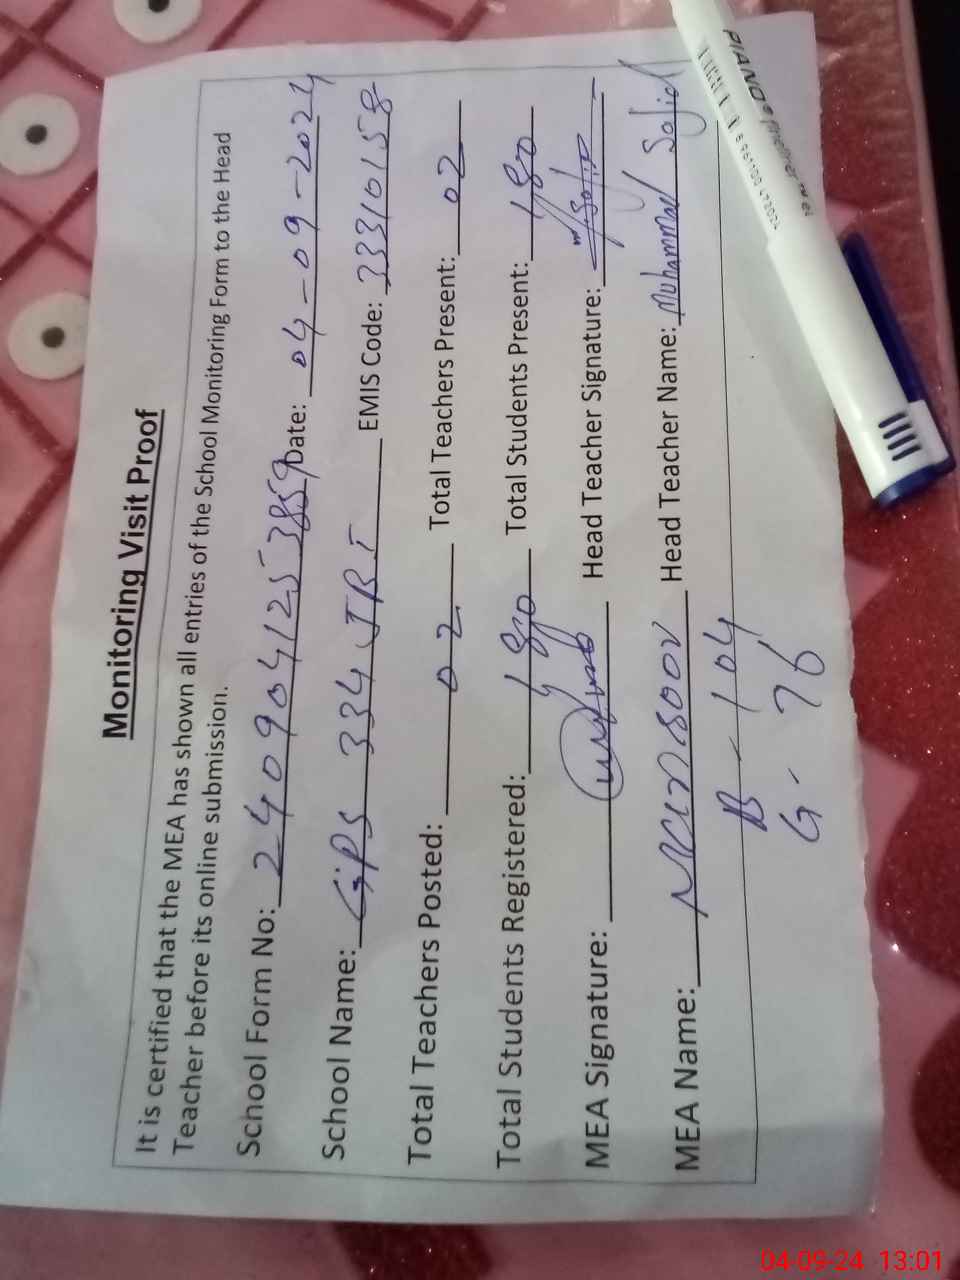 Monitoring Visit Proof
It is certified that the MEA has shown all entries of the School Monitoring Form to the Head
Teacher before its online submission.
School Form No: 2409041253859 Date: 04-09-2024
School Name: GPS 334 JB I EMIS Code: 33310158
Total Teachers Posted: 02 Total Teachers Present: 02
Total Students Registered: 180 Total Students Present: 180
MEA Signature: Head Teacher Signature:
MEA Name: Head Teacher Name: Muhammad Sajid
B - 104
G - 76
PIANO
04-09-24 13:01